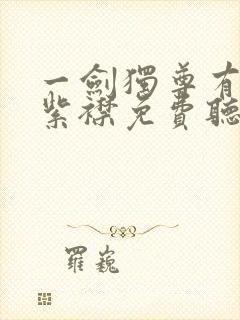 一劍獨尊有
紫襟免費聽
羅巍